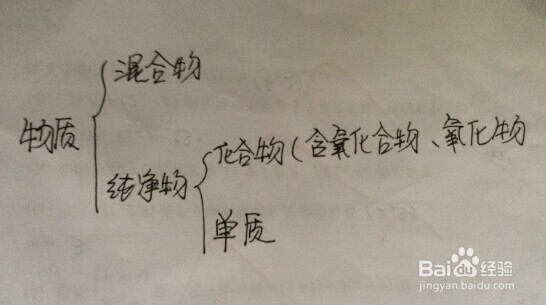 混合物
物质
化合物(含氧化合物、氧化物
纯净物
单质
Bai du 经验
jingyan.baidu.com